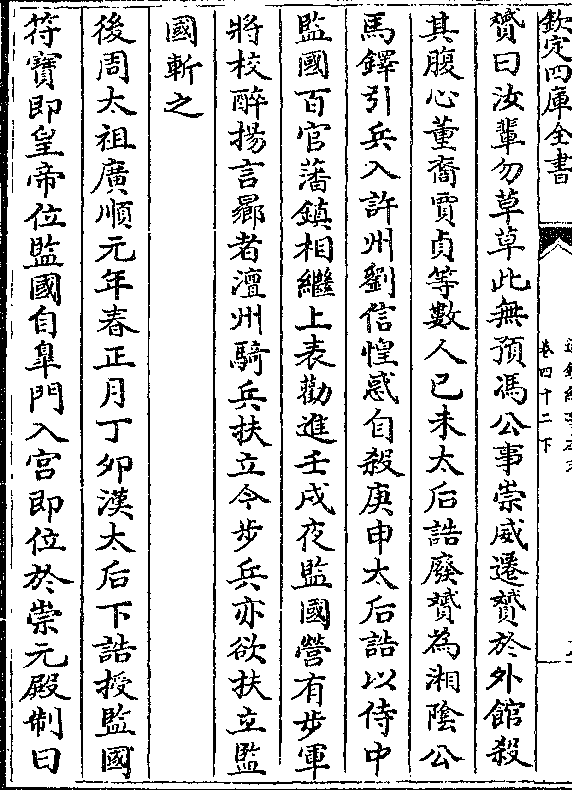 欽定四庫全書
卷四十二下
贇曰汝輩勿草草此無預馮公事崇威遷贇於外館殺
其腹心董裔賈貞等數人己未太后誥廢贇為湘陰公
馬鐸引兵入許州劉信惶惑自殺庚申太后誥以侍中
監國百官藩鎮相繼上表勸進壬戌夜監國營有步軍
將校醉揚言曏者澶州騎兵扶立今步兵亦欲扶立監
國斬之
後周太祖廣順元年春正月丁卯漢太后下誥授監國
符寶即皇帝位監國自臯門入宫即位於崇元殿制曰